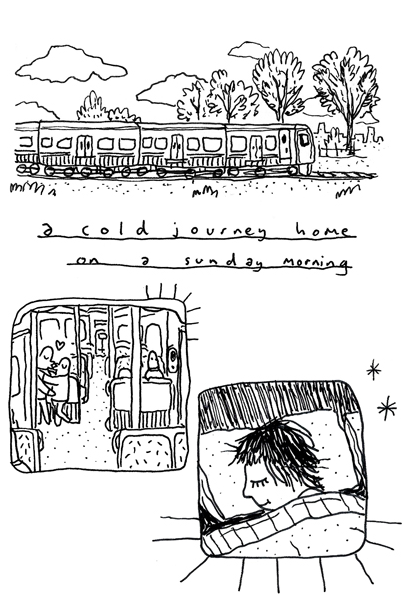 a cold journey home
on a sunday morning